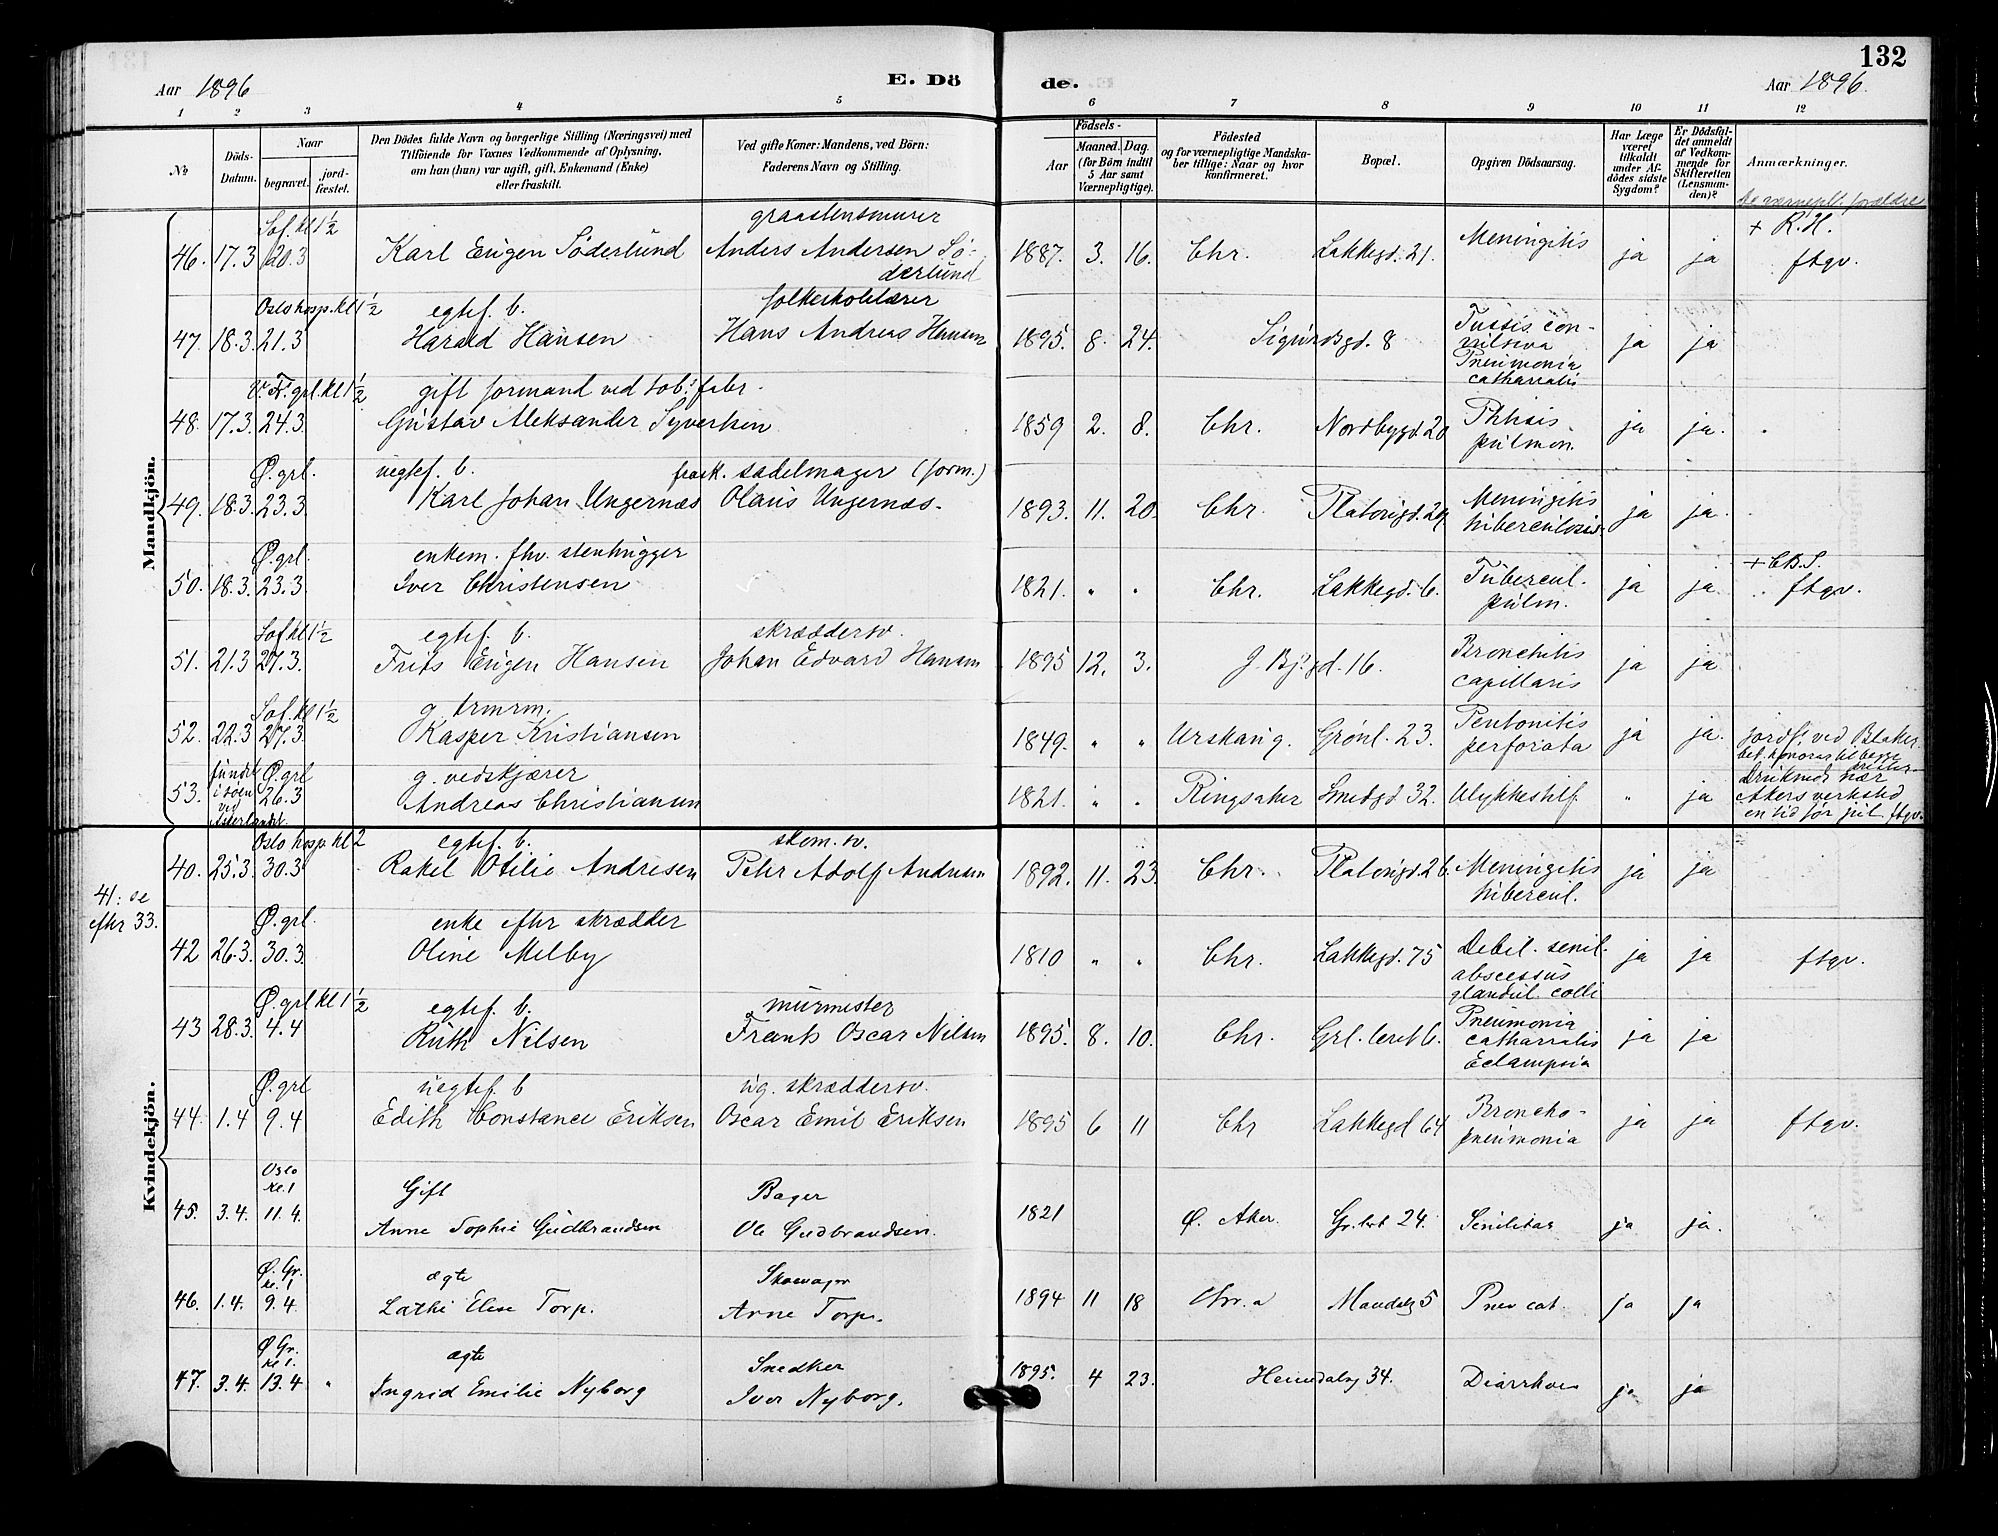 132
Aar 1896
E. Dö
de.
Aar 1896.
1 2 3 4 5 6 7 8 9 10 11 12
No
Döds-Datum.
Naar
begravet.
jord-fæstet.
Den Dödes fulde Navn og borgerlige Stilling (Næringsvei) med
Tilföiende for Voxnes Vedkommende af Oplysning,
om han (hun) var ugift, gift, Enkemand (Enke)
eller fraskilt.
Ved gifte Koner: Mandens, ved Börn:
Faderens Navn og Stilling.
Födsels-
Aar
Maaned. Dag.
(for Börn indtil
5 Aar samt
Værnepligtige).
Födested
og for værnepligtige Mandska-
ber tillige: Naar og hvor
konfirmeret.
Bopæl.
Opgiven Dödsaarsag.
Har Læge
været
tilkaldt
under Af-
dödes sidste
Sygdom?
Er Dödsfal-
det anmeldt
af Vedkom-
mende for
Skifteretten
(Lensman-
den)?
Anmærkninger.
Mandkjön.
Sof. kl 1½ graastensmurer + R.H.
46. 17.3 20.3 Karl Eugen Söderlund Anders Andersen Sö-
derlund 1887. 3. 16. Chr. Lakkegd. 21. Meningitis ja ja ftgv.
Oslo hosp. kl 1½ egtef. b. folkeskolelærer
47. 18.3. 21.3 Harald Hansen Hans Andreas Hansen 1895. 8. 24. Sigurdsgd. 8 Tussis con-
vulsiva
Pneumonia
catharralis ja ja
V. Fr. grl. kl 1½ gift formand ved tob.s fabr.
48. 17.3. 24.3 Gustav Aleksander Syvertsen 1859 2. 8. Chr. Nordbygd. 20 Phtisis
pulmon. ja ja.
Ø. grl. uegtef. b. frask. sadelmager (form.)
49. 18.3. 23.3 Karl Johan Ungernæs Olaus Ungernæs. 1893. 11. 20. Chr. Platousgd. 29. Meningitis
tuberculosis. ja ja.
Ø. grl. enkem. fhv. stenhugger + C.B.S.
50. 18.3. 23.3. Iver Christensen 1821. " " Chr. Lakkegd. 6. Tubercul.
pulm. ja ja. ftgv.
Sof. kl 1½ egtef. b. skræddersv.
51. 21.3 27.3. Frits Eugen Hansen Johan Edvard Hansen 1895 12. 3. J. Bj.gd. 16. Bronchitis
capillaris ja ja
Sof. kl 1½ g. trmrm.
52. 22.3 27.3. Kasper Kristiansen 1849. " " Urskaug. Grönl. 23. Peritonitis
perforata ja ja. jordf. ved Blaker.
fundet
i söen
ved Ø. grl g. vedskjærer
53. 26.3 Andreas Christiansen 1821. " " Ringsaker Smedgd 32. Ulykkestilf. " ja Druknede nær
Akers verksted
en tid før jul. ftgv.
Kvindekjön.
Oslo hosp kl 2 egtef. b. skom. sv.
40. 25.3. 30.3 Rakel Otilie Andresen Peter Adolf Andresen 1892. 11. 23. Chr. Platousgd. 26. Meningitis
tubercul. ja ja
41: se
efter 33.
Ø. grl. enke efter skrædder
42 26.3. 30.3. Oline Melby 1810 " " Chr. Lakkegd. 75 Debil. senil.
abscessus
glandul. colli ja ja ftgv.
Ø. grl kl 1½ egtef. b. murmester
43 28.3. 4.4 Ruth Nilsen Frank Oscar Nilsen 1895. 8. 10. Chr. Grl. leret 6. Pneumonia
catharralis
Eclampsia ja ja
Ø. grl uegtef. b ug. skræddersv.
44. 1.4 9.4 Edith Constance Eriksen Oscar Emil Eriksen 1895 6 11 Chr Lakkegd 64 Broncho-
pneumonia ja ja ftgv.
Oslo
kl. 1 Gift Bager
45. 3.4. 11.4. Anne Sophie Gudbrandsen Ole Gudbrandsen. 1821 Ø. Aker. Gr. lert 24. Senilitas ja ja.
Ø. Gr.
kl. 1 ægte Skomager
46. 1.4. 9.4. Elise Torp. Arne Torp. 1894 11 18 Chr.a Mandalsg 5 Pnev cat. ja ja
Ø Gr.
kl 1. ægte Snedker
47. 3.4. 13.4 " Ingrid Emilie Nyborg Iver Nyborg. 1895. 4 23. Heimdalsg 34. Diarrhoe ja ja